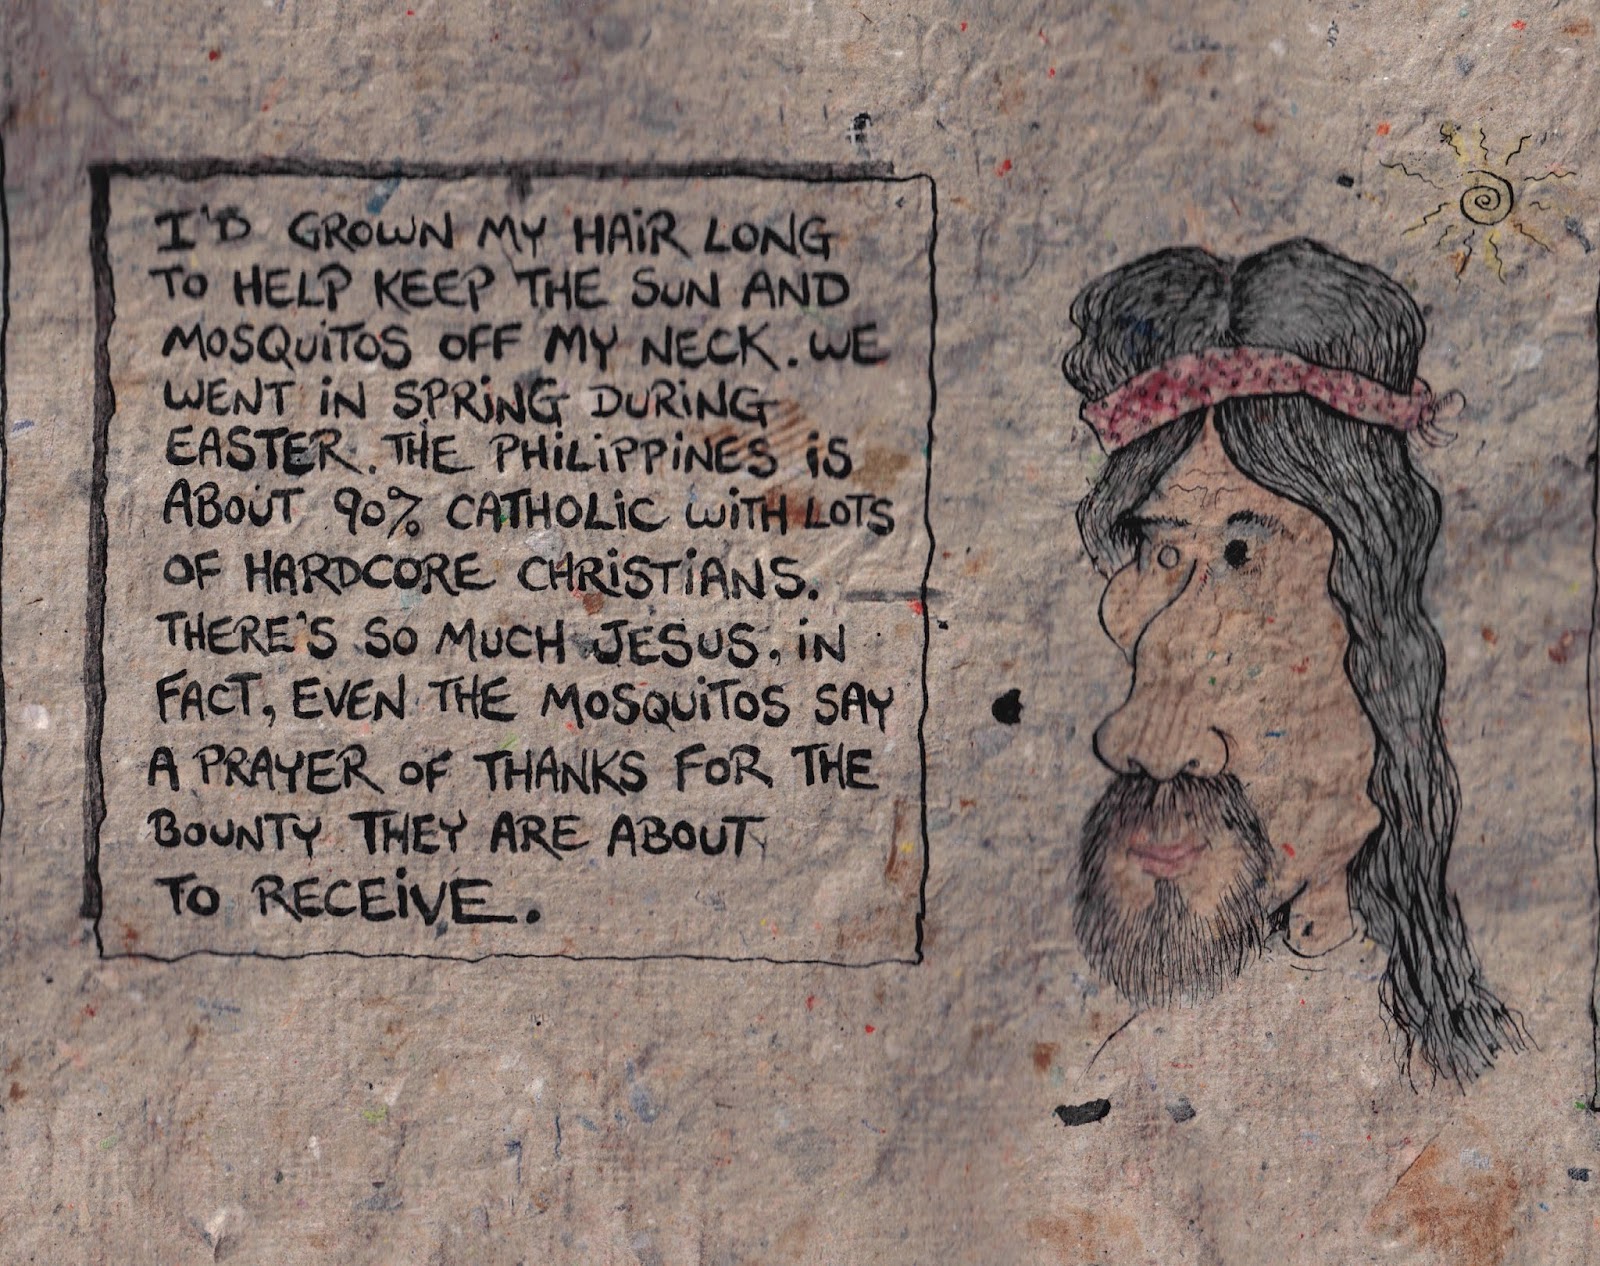 I'D GROWN MY HAIR LONG
TO HELP KEEP THE SUN AND
MOSQUITOS OFF MY NECK. WE
WENT IN SPRING DURING
EASTER. THE PHILIPPINES IS
ABOUT 90% CATHOLIC WITH LOTS
OF HARDCORE CHRISTIANS.
THERE'S SO MUCH JESUS. IN
FACT, EVEN THE MOSQUITOS SAY
A PRAYER OF THANKS FOR THE
BOUNTY THEY ARE ABOUT
TO RECEIVE.